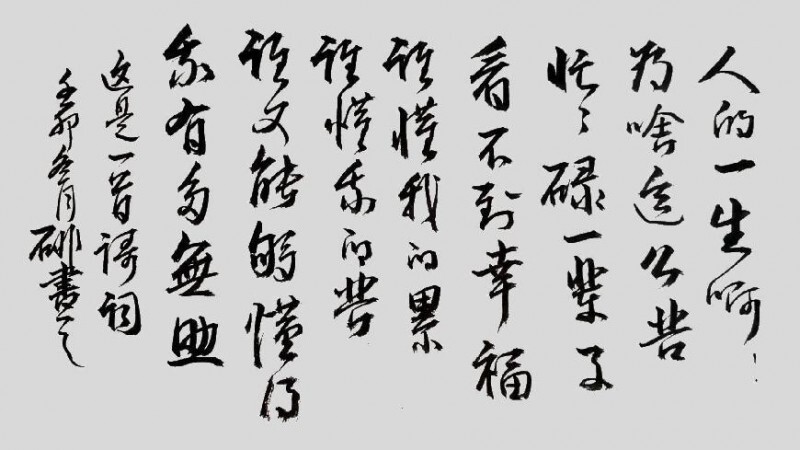 人的一生啊!
为啥这么苦
忙々碌一辈子
看不到幸福
谁懂我的累
谁懂我的苦
谁又能够懂得
我有多無助
这是一首謌词
壬卯冬月 書之